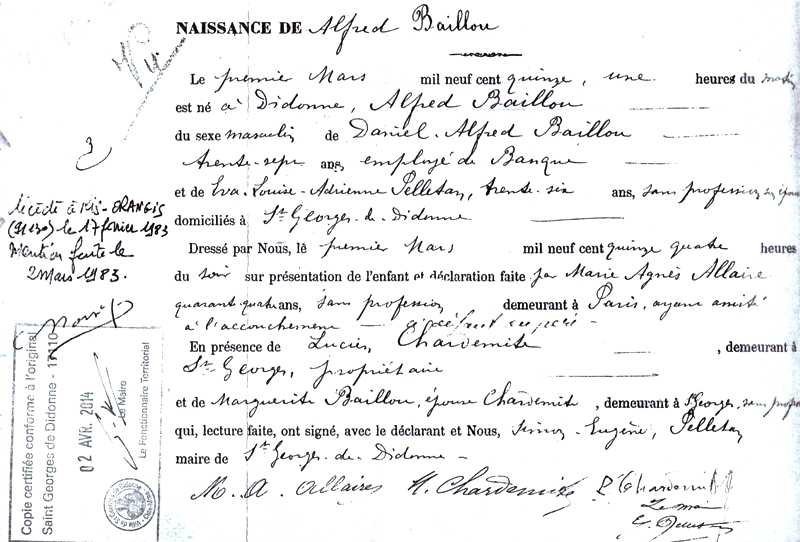 NAISSANCE DE Alfred Baillou
Le premier Mars mil neuf cent quinze, une heures du matin
est né à Didonne, Alfred Baillou
du sexe masculin de Daniel-Alfred Baillou
trente-sept ans, employé de Banque
et de Eva-Louise-Adrienne Pelletan, trente-six ans, sans profession, son épouse
domiciliés à St Georges-de-Didonne
Dressé par Nous, le premier Mars mil neuf cent quinze quatre heures
du soir sur présentation de l'enfant et déclaration faite par Marie Agnès Allaire
quarante quatre ans, sans profession demeurant à Paris, ayant assisté
à l'accouchement — à défaut du père -
En présence de Lucien Chardemite, demeurant à
St Georges, propriétaire
et de Marguerite Baillou, épouse Chardemite, demeurant à St Georges, sans prof
qui, lecture faite, ont signé, avec le déclarant et Nous, Eugène, Pelletan
maire de St Georges-de-Didonne -
M. A. Allaire M. Chardemite L. Chardemite
Le maire
3
décédé à Ris-ORANGIS
(91130) le 17 février 1983
Mention faite le
2 mars 1983.
Copie certifiée conforme à l'original
Saint Georges de Didonne - 17110
02 AVR. 2014
Le Maire
Le Fonctionnaire Territorial